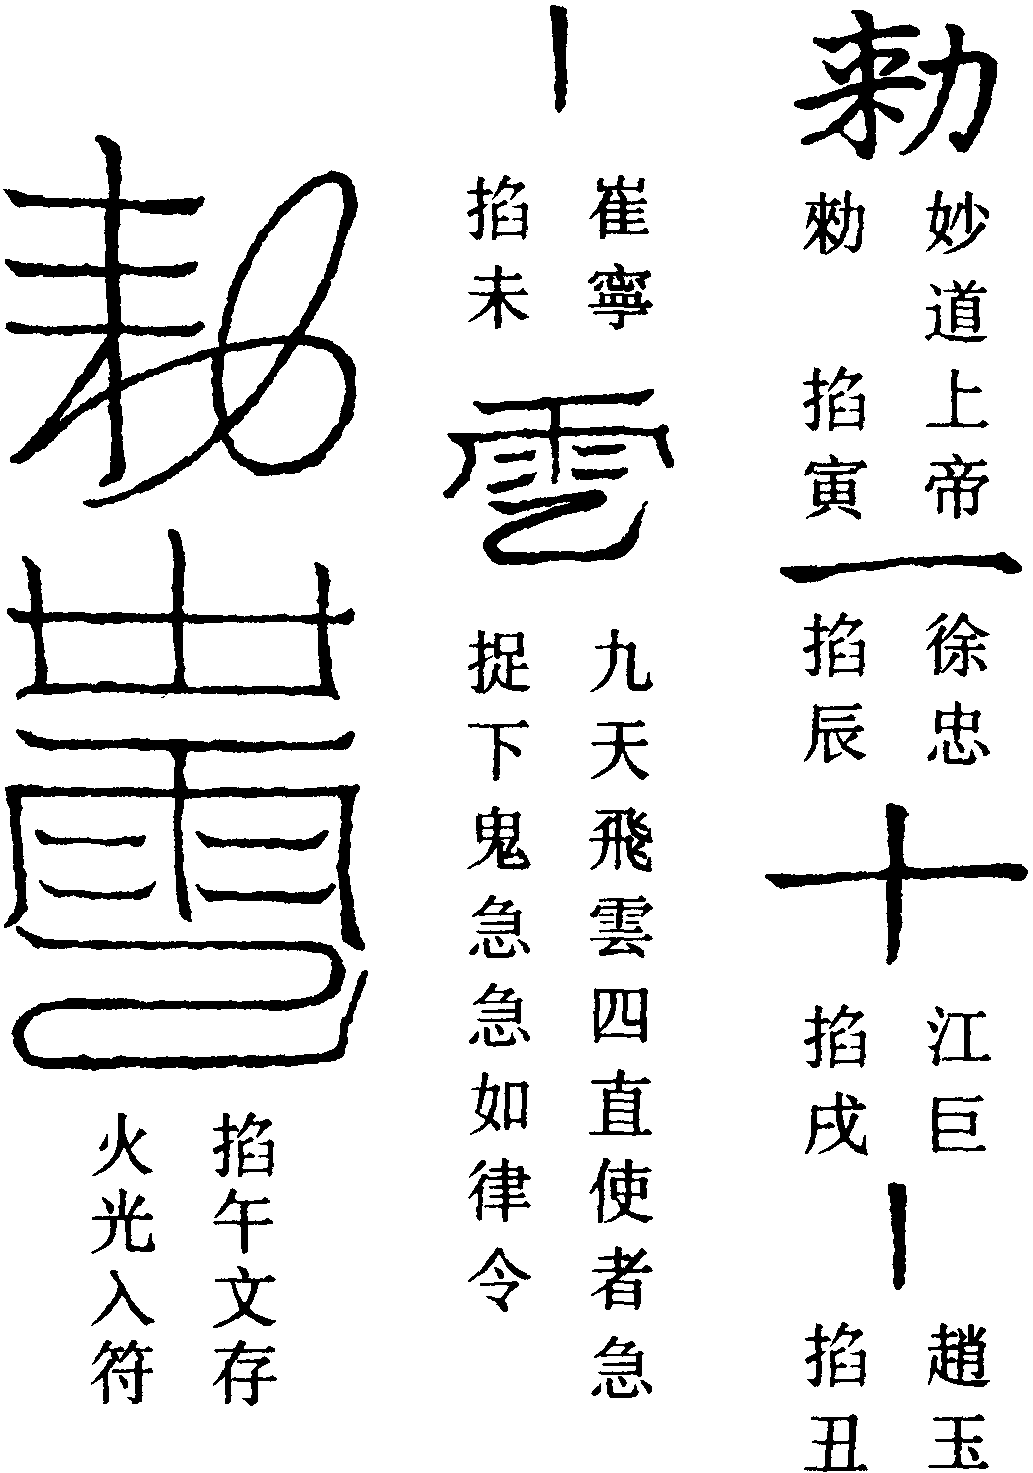 勑
妙道上帝
勑　掐寅
一
徐忠
掐辰
十
江巨
掐戌
丨
趙玉
掐丑
丨
崔寧
掐未
雲
九天飛雲四直使者急
捉下鬼急急如律令
掐午文存
火光入符